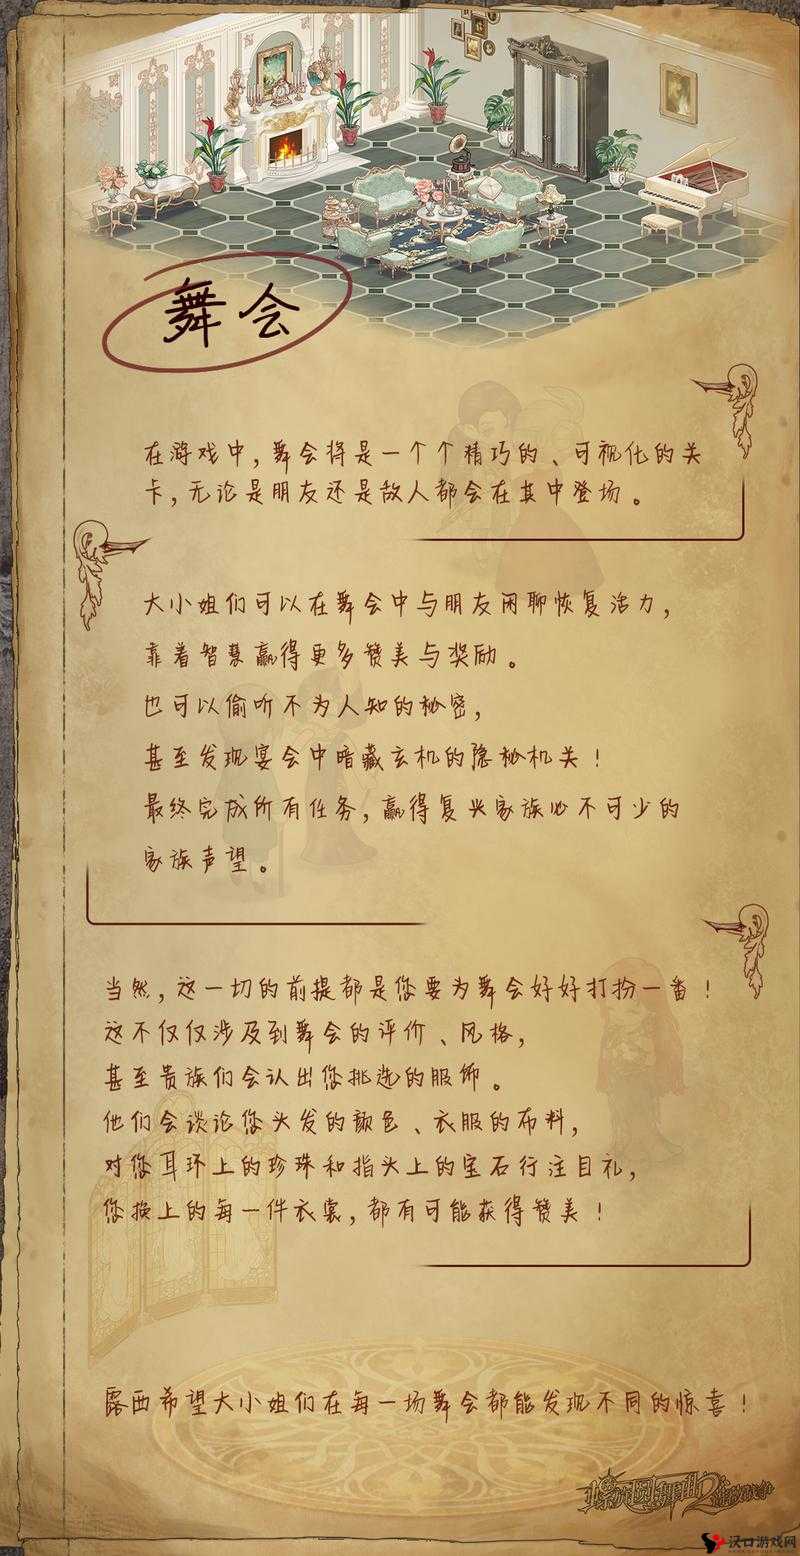 舞会
在游戏中，舞会将是一个个精巧的、可视化的关
卡，无论是朋友还是敌人都会在其中登场。
大小姐们可以在舞会中与朋友闲聊恢复活力，
靠着智慧赢得更多赞美与奖励。
也可以偷听不为人知的秘密，
甚至发现宴会中暗藏玄机的隐秘机关！
最终完成所有任务，赢得复兴家族必不可少的
家族声望。
当然，这一切的前提都是您要为舞会好好打扮一番！
这不仅仅涉及到舞会的评价、风格，
甚至贵族们会认出您挑选的服饰。
他们会谈论您头发的颜色、衣服的布料，
对您耳环上的珍珠和指头上的宝石行注目礼，
您换上的每一件衣裳，都有可能获得赞美！
露西希望大小姐们在每一场舞会都能发现不同的惊喜！
螺旋圆舞曲2
汉口游戏网